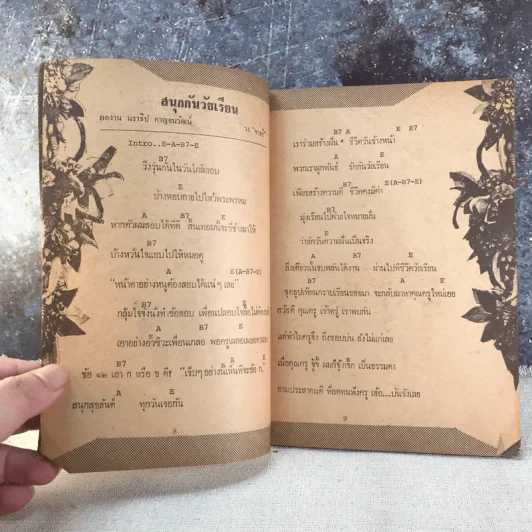 สนุกกันวัยเรียน
ผลงาน นราธิป กาญจนวัฒน์
วง "ชาตรี"
Intro..E-A-B7-E
B7
วิ่งวุ่นกันในวันใกล้สอบ
E
บ้างหอบกายไปไหว้พระพรหม
A B7 E
หากตัวผมสอบได้ที่ดี
B7
บ้างหวั่นใจแอบไปไหว้หมอดู
A E(A-B7-E)
"หน้าตาอย่างหนูต้องสอบได้แน่ๆ เลย"
B7 E
กลุ้มใจจังนั่งทำข้อสอบ เพื่อนปลอบใจ
A B7 E
เอาอย่างอั๊วซิวะเพื่อนเกลย
B7 E
ข้อ ๑๒ เอา ก หรือ ข ดี
A E
สนุกสุขสันต์ ทุกวันเจอกัน
8
B7 A E E7
เราร่วมสร้างฝัน * ชีวิตวันข้างหน้า
A E
พวกเราผูกพันธ์ รักกันวัยเรียน
B7 E(A-B7-E)
เพียรสร้างความดี ชีวิตคงมีค่า
B7
มุ่งเรียนไปด้วยใจหมายมั่น
E
ว่าสักวันความฝันเป็นจริง
A B7 E
สิ่งเดียวนั้นจบพลันได้งาน - ผ่านไปทีชีวิตวัยเรียน
B7 A E
จุดธูปเทียนกราบเรียนขอขมา จะกลับมาหาคุณครูใหม่เอย
สวัสดี คุณครู เช้าตรู่ เราพบกัน
แต่ทำไมครูจึง ถึงชอบบ่น ยังไม่แก่เลย
เมื่อคุณครู จู้จี้ ผมก็จุ๊กจิ๊ก เป็นธรรมดา
9